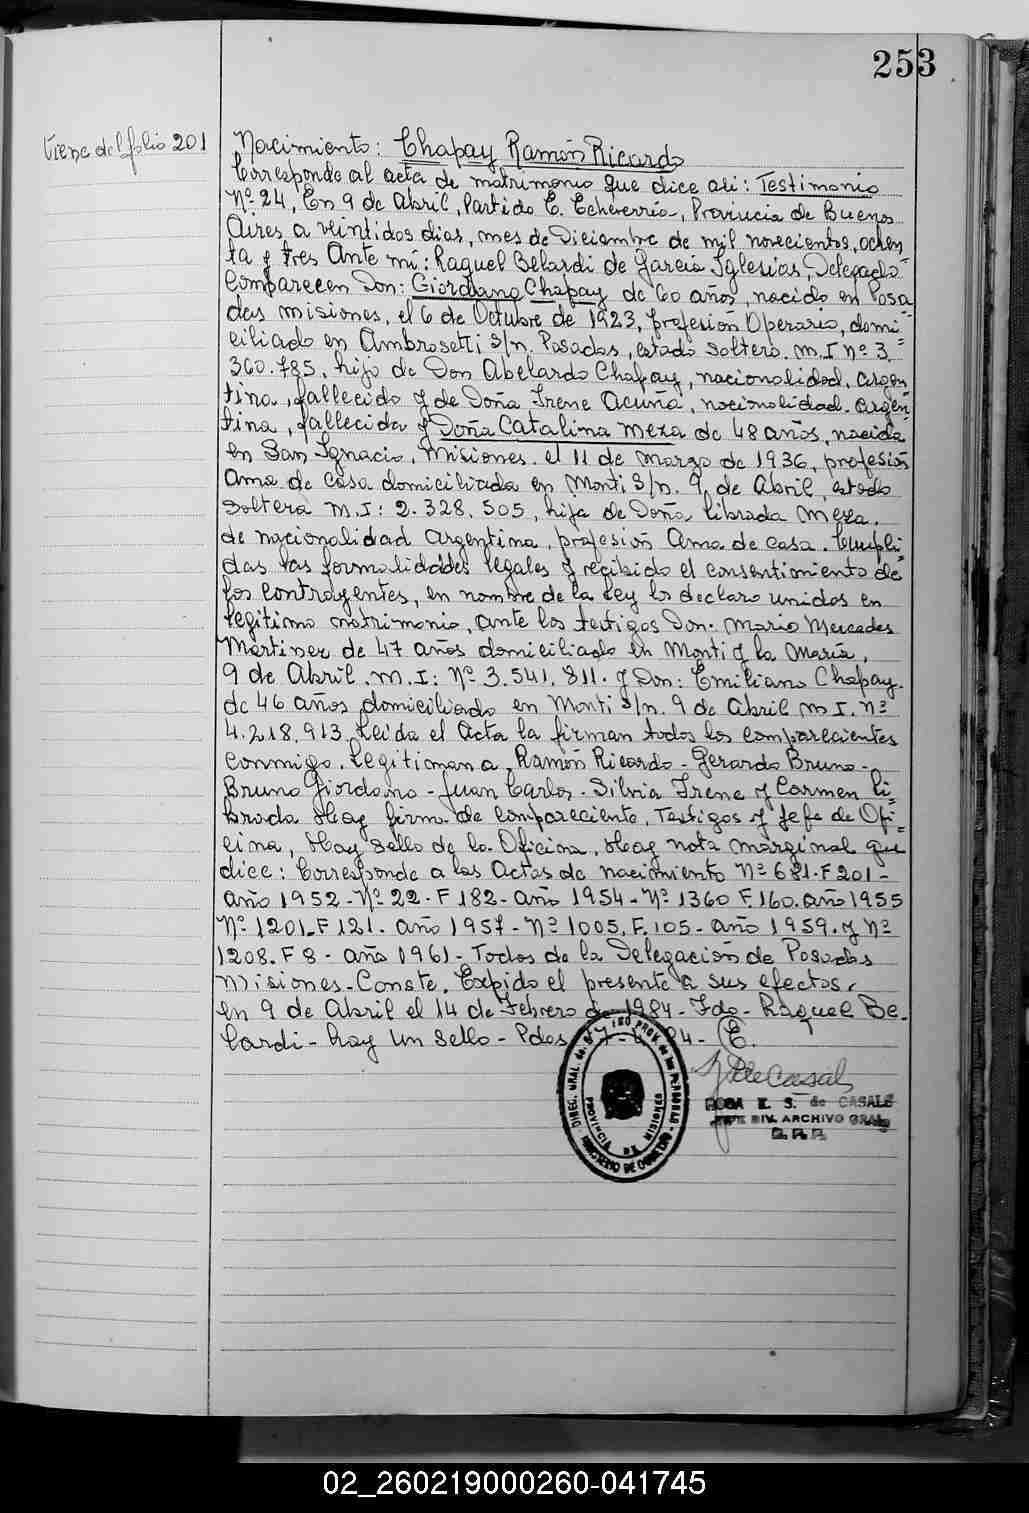 253
Viene del folio 201
Nacimiento: Chapay Ramón Ricardo
Corresponde al acta de matrimonio que dice asi: Testimonio
Nº 24, En 9 de Abril, Partido E. Echeverría, Provincia de Buenos
Aires a veintidos dias, mes de Diciembre de mil novecientos, ochen-
ta y tres Ante mi: Raquel Belardi de Garcia Iglesias, Delegado
Comparecen Don: Giordano Chapay de 60 años, nacido en Posa-
das misiones, el 6 de Octubre de 1923, profesión Operario, domi-
ciliado en Ambrosetti s/n. Posadas, estado soltero. M.I Nº 3.
360.785, hijo de Don Abelardo Chapay, nacionalidad. argen-
tina, fallecido y de Doña Irene Acuña, nacionalidad. argen-
tina, fallecida y Doña Catalina Meza de 48 años, nacida
en San Ignacio, Misiones. el 11 de marzo de 1936, profesión
Ama de casa domiciliada en Monti S/n. 9 de Abril, estado
soltera M.I: 2.328.505, hija de Doña Librada Meza.
de nacionalidad Argentina, profesión Ama de casa. Cumpli-
das las formalidades legales y recibido el consentimiento de
los Contrayentes, en nombre de la Ley lo declaro unidos en
legítimo matrimonio, ante los testigos Don. Mario Mercedes
Martinez de 47 años domiciliado en Monti y la María,
9 de Abril. M.I: Nº 3.541.811. y Don: Emiliano Chapay.
de 46 años domiciliado en Monti S/n. 9 de Abril M I. Nº
4.218.913, Leida el Acta la firman todos los comparecientes
conmigo. Legitiman a Ramón Ricardo - Gerardo Bruno -
Bruno Giordano - Juan Carlos - Silvia Irene y Carmen Li-
brada Hay firma de compareciente, Testigos y Jefe de Ofi-
cina, Hay sello de la Oficina, Hay nota marginal que
dice: Corresponde a las Actas de nacimiento Nº 681. F 201 -
año 1952 - Nº 22 - F 182 - año 1954 - Nº 1360 F. 160. año 1955
Nº 1201. F 121. año 1957 - Nº 1005. F. 105 - año 1959. y Nº
1208. F 8 - año 1961 - Todos de la Delegación de Posadas
Misiones - Conste. Expido el presente a sus efectos.
En 9 de Abril el 14 de Febrero de 1984 - Fdo - Raquel Be-
lardi - hay un sello - Pdas
PROVINCIA DE MISIONES
MINISTERIO DE GOBIERNO
ROSA E. S. de CASALS
JEFE DIV. ARCHIVO GRAL
02_260219000260-041745